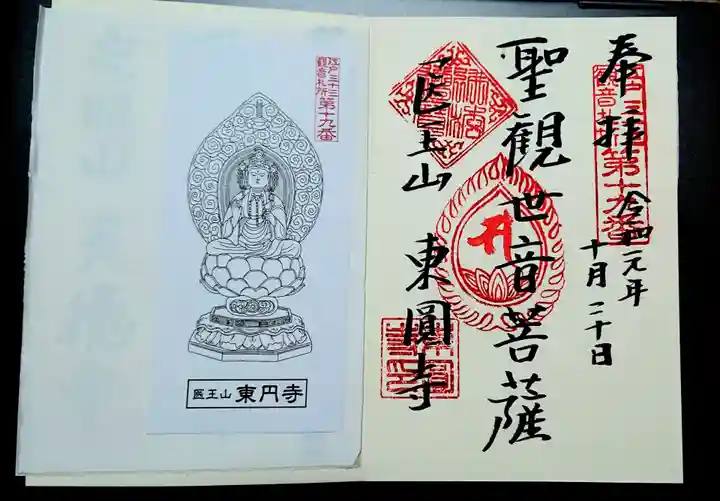 奉拝
令和元年
十月二十日
聖観世音菩薩
医王山 東圓寺
江戸三十三
観音札所
第十九番
江戸三十三
観音札所
第十九番
医王山 東円寺